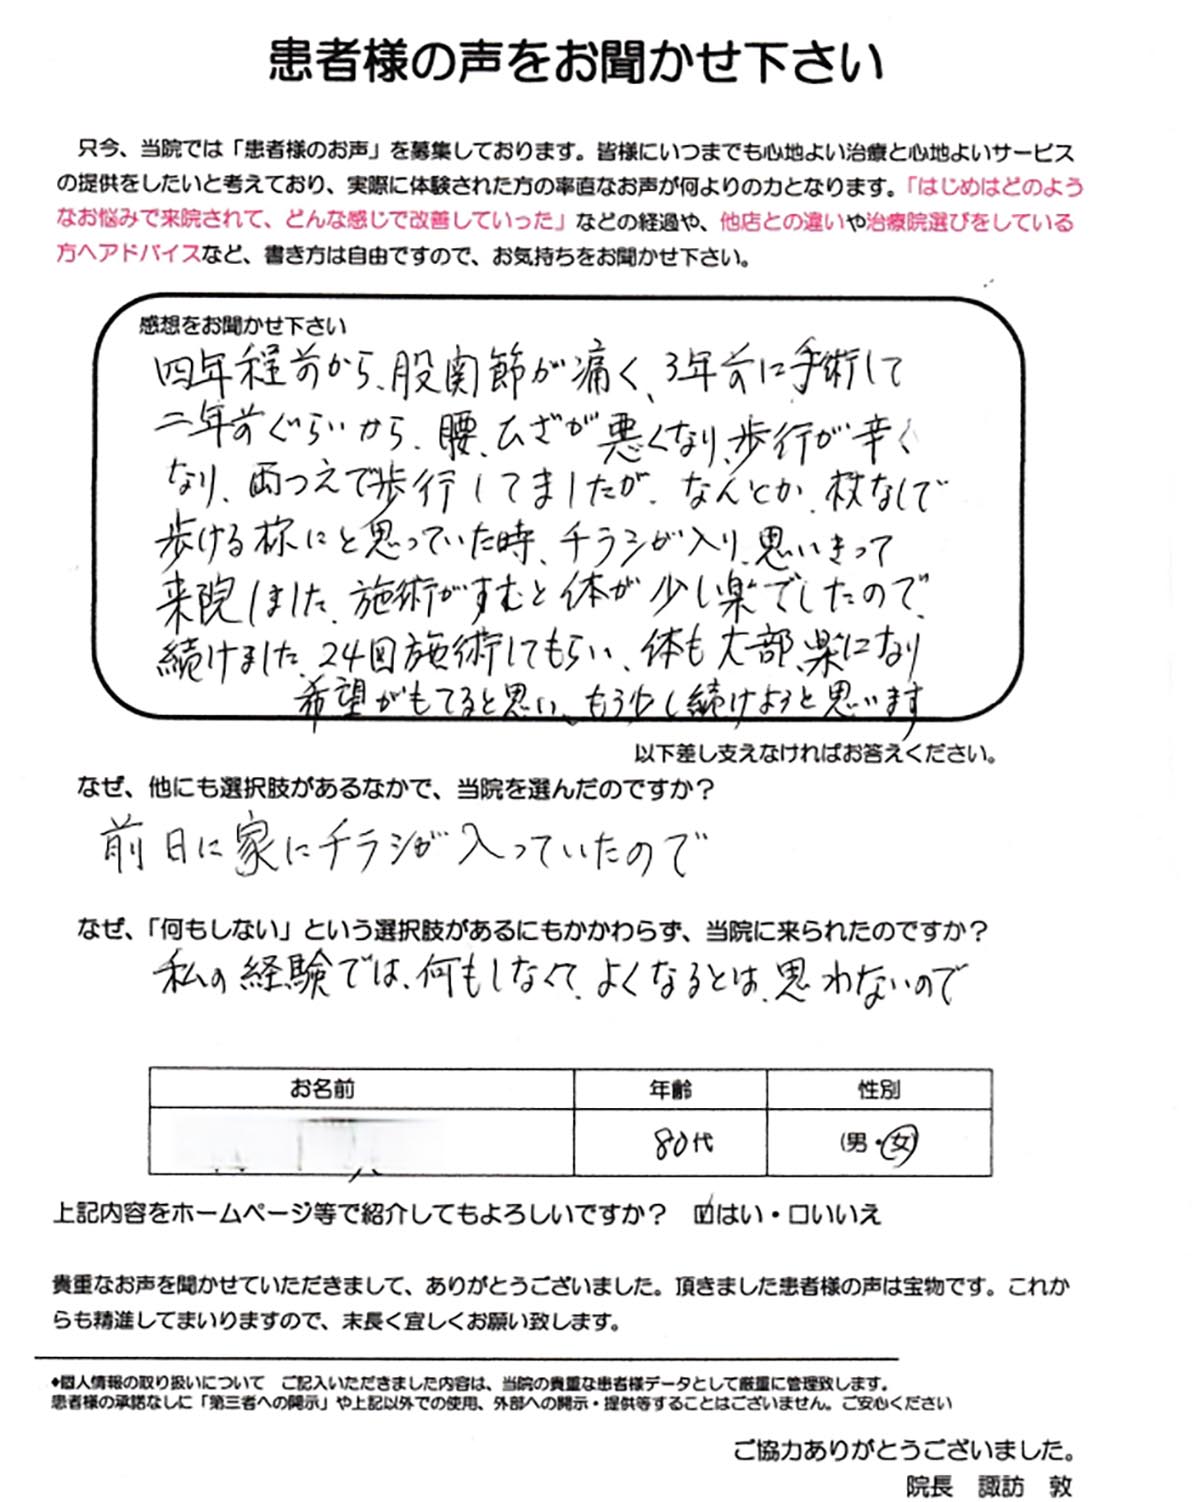 患者様の声をお聞かせ下さい
只今、当院では「患者様のお声」を募集しております。皆様にいつまでも心地よい治療と心地よいサービス
の提供をしたいと考えており、実際に体験された方の率直なお声が何よりの力となります。「はじめはどのよう
なお悩みで来院されて、どんな感じで改善していった」などの経過や、他店との違いや治療院選びをしている
方へアドバイスなど、書き方は自由ですので、お気持ちをお聞かせ下さい。
感想をお聞かせ下さい
四年程前から、股関節が痛く、3年前に手術して
二年前ぐらいから、腰、ひざが悪くなり、歩行が辛く
なり、両つえで歩行してましたが、なんとか、杖なしで
歩ける様にと思っていた時、チラシが入り、思いきって
来院しました、施術がすむと体が少し楽でしたので、
続けました、24回施術してもらい、体も大部、楽になり
希望がもてると思い、もう少し続けようと思います
以下差し支えなければお答えください。
なぜ、他にも選択肢があるなかで、当院を選んだのですか？
前日に家にチラシが入っていたので
なぜ、「何もしない」という選択肢があるにもかかわらず、当院に来られたのですか？
私の経験では、何もしなくて、よくなるとは、思わないので
お名前 年齢 性別
80代 (男・女)
上記内容をホームページ等で紹介してもよろしいですか？ ☑はい・□いいえ
貴重なお声を聞かせていただきまして、ありがとうございました。頂きました患者様の声は宝物です。これか
らも精進してまいりますので、末長く宜しくお願い致します。
♦個人情報の取り扱いについて ご記入いただきました内容は、当院の貴重な患者様データとして厳重に管理致します。
患者様の承諾なしに「第三者への開示」や上記以外での使用、外部への開示・提供等することはございません。ご安心ください
ご協力ありがとうございました。
院長 諏訪 敦